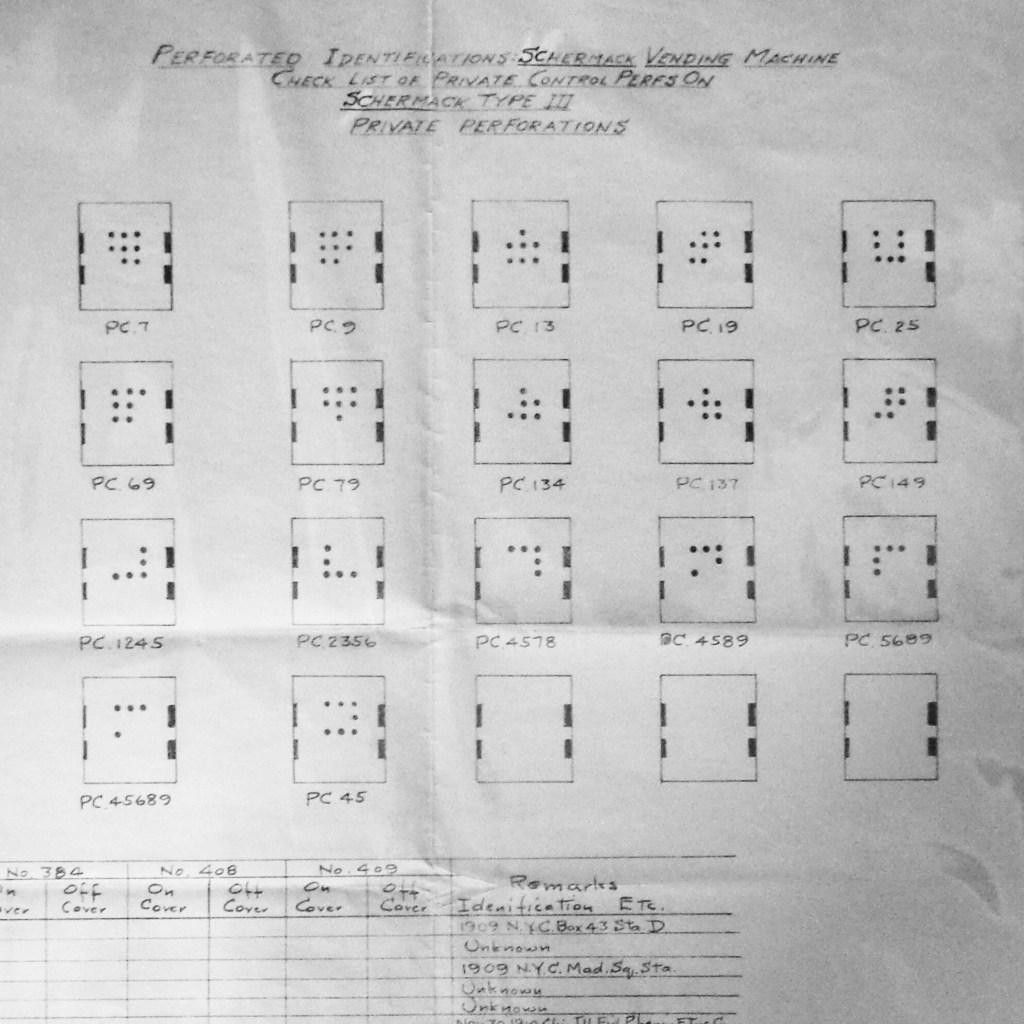 PERFORATED IDENTIFICATIONS: SCHERMACK VENDING MACHINE
CHECK LIST OF PRIVATE CONTROL PERFS ON
SCHERMACK TYPE III
PRIVATE PERFORATIONS
PC.7 PC.9 PC.13 PC.19 PC.25
PC.69 PC.79 PC.134 PC.137 PC.149
PC.1245 PC.2356 PC.4578 PC.4589 PC.5689
PC.45689 PC 45
No. 384 No. 408 No. 409
Off On Off On Off Remarks
Cover Cover Cover Cover Cover Idenification Etc.
1909 N.Y.C. Box 43 Sta. D
Unknown
1909 N.Y.C. Mad. Sq. Sta.
Unknown
Unknown